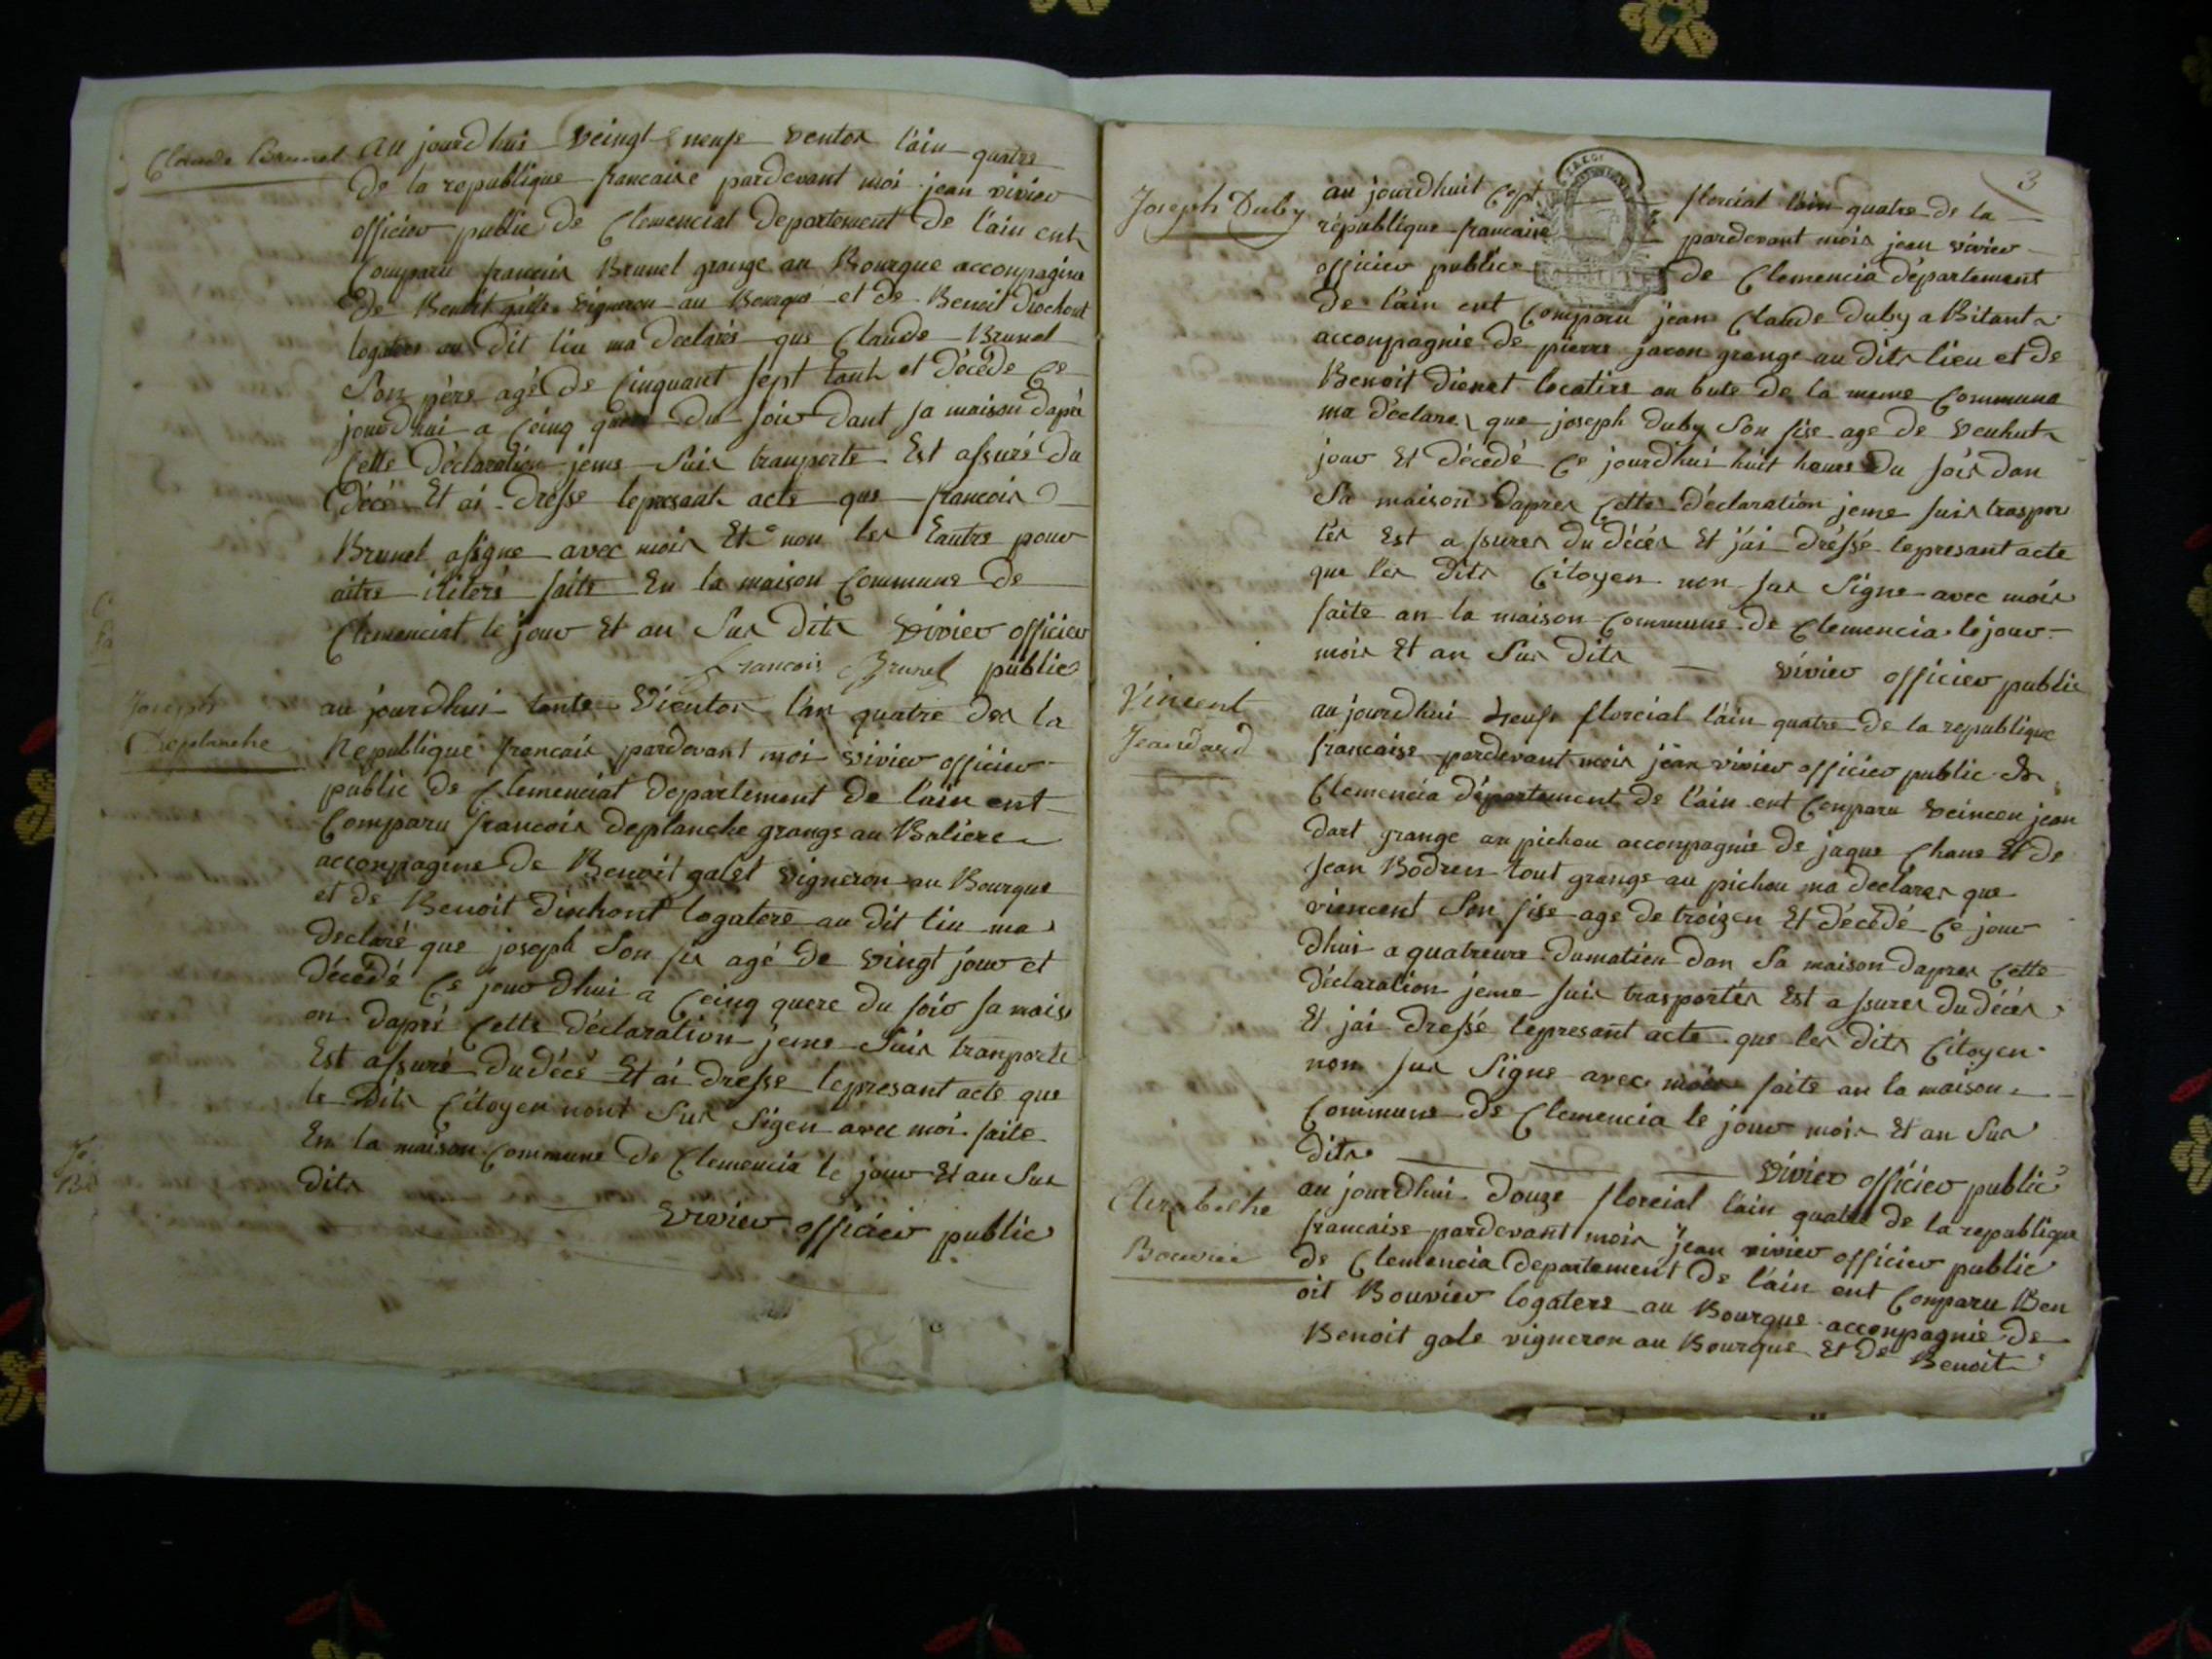 Claude Brunel
au jourdhui veingt neufe ventos l'ain quatre
de la republique francaise pardevant moi jean vivier
officier public de Clemenciat departement de l'ain ent
Comparu francois Brunel grange au Bourque acconpagine
de Benoit galle vigneron au Bourque et de Benoit diochont
logatere au dit liu ma declarés que Claude Brunel
Son père agé de Cinquant sept et décéde Ce
jourdhui a Ceinq du soir dant sa maison daprè
Cette déclaration jeme suis tranporte Est assuré du
décé Et ai dresse lepresant acte que francois
Brunel asigne avec mois Et non les lautre pour
aitre iliterè faite En la maison Commune de
Clemenciat le jour Et an Sus dits vivier officier
francois Brunel public
Joseph
Deplanche
au jourdhui tante vientos l'an quatre des la
Republique francais pardevant moi vivier officier
public de Clemenciat departement de l'ain ent
Comparu francois deplanche grange au Baliere
acconpagine de Benoit galet vigneron au Bourque
et de Benoit diochont logatere au dit liu ma
declaré que joseph Son fis agé de vingt jour et
décédé Ce jour dhui a Ceinq quere du soir sa mais
on daprè Cette déclaration jeme Suis tranporte
Est assuré dudécé Et ai dresse lepresant acte que
le dits Citoyen nont Sus Sigen avec moi faite
En la maison Commune de Clemencia le jour Et an Sus
dits
vivier officier public
3
Joseph Duby
au jourdhuit Cept florcial l'ain quatre de la
république francaise pardevant mois jean vivier
officier public de Clemencia département
de l'ain ent Comparu jean Claude duby a Bitant
acconpagnie de pierre jacon grange au dits lieu et de
Benoit dienet locatire au bute de la meme Commune
ma déclares que joseph duby Son fise age de venhut
jour Et décedé Ce jourdhui huit heure du soir dan
Sa maison dapres Cette déclaration jeme suis traspor
tés Est a ssures du décés Et jai dréssé lepresant acte
que les dits Citoyen non sus Signe avec mois
faite an la maison Commune de Clemencia le jour
mois Et an Sus dits vivier officier public
Vincent
Jeandard
au jourdhui neufe florcial l'ain quatre de la republique
francaise pardevant mois jean vivier officier public de
Clemencia département de l'ain ent Conparu veincen jean
dart grange au pichou acconpagnie de jaque Chane Et de
Jean Bodren tout grange au pichou ma declares que
viencent Son fise age de troizen Et décédé Ce jour
dhui a quatreure dumatien dan Sa maison dapres Cette
déclaration jeme suis trasportés Est a ssures dudécés
Et jai dressé lepresant acte que les dits Citoyen
non sus Signe avec mois faite an la maison
Commune de Clemencia le jour mois Et an Sus
dits vivier officier public
Elizabethe
Bouvier
au jourdhui douze florcial l'ain quatre de la republique
francaise pardevant mois jean vivier officier public
de Clemencia departement de l'ain ent Conparu Ben
oit Bouvier logatere au Bourque acconpagnie de
Benoit gale vigneron au Bourque Et de Benoit